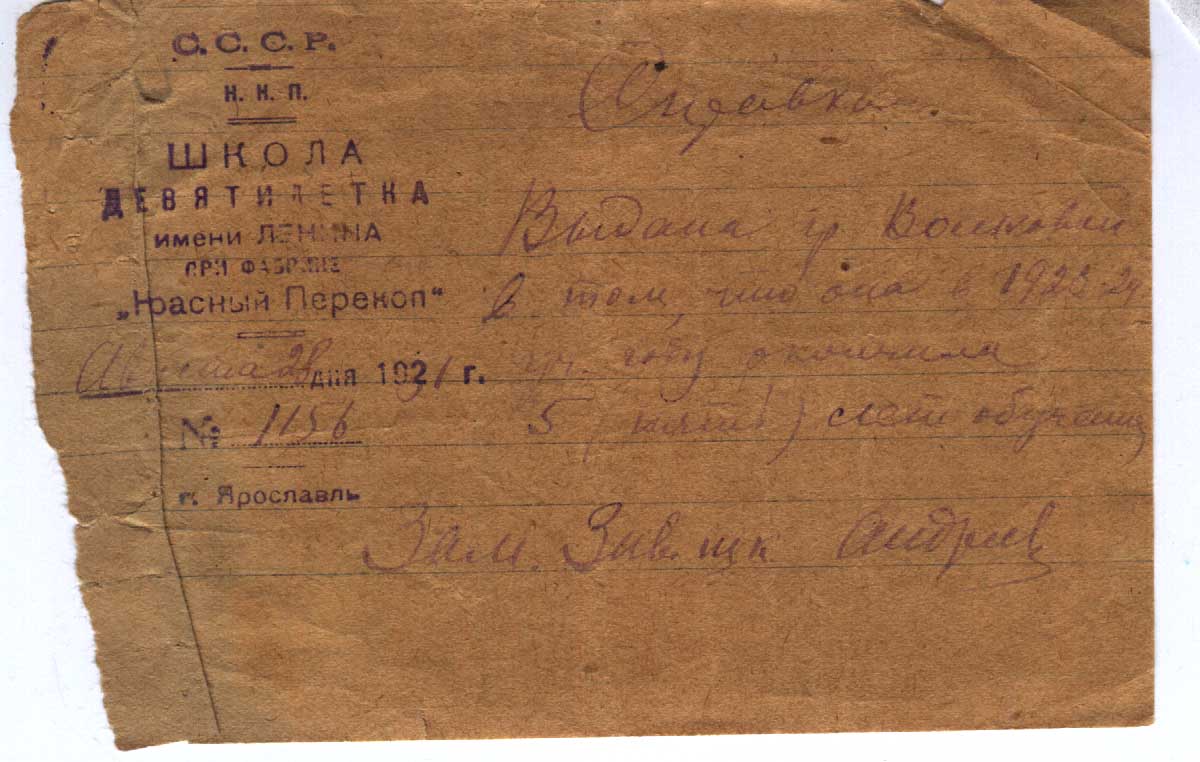 С. С. С. Р.
Н. К. П.
ШКОЛА
ДЕВЯТИЛЕТКА
имени ЛЕНИНА
ПРИ ФАБРИКЕ
„Красный Перекоп“
Августа 28 дня 1921 г.
№ 1156
г. Ярославль
Справка.
Выдана гр Волковой
в том, что она в 1923-24
году окончила
5 (пять) лет обучения
Зам. Зав. шк Андреев